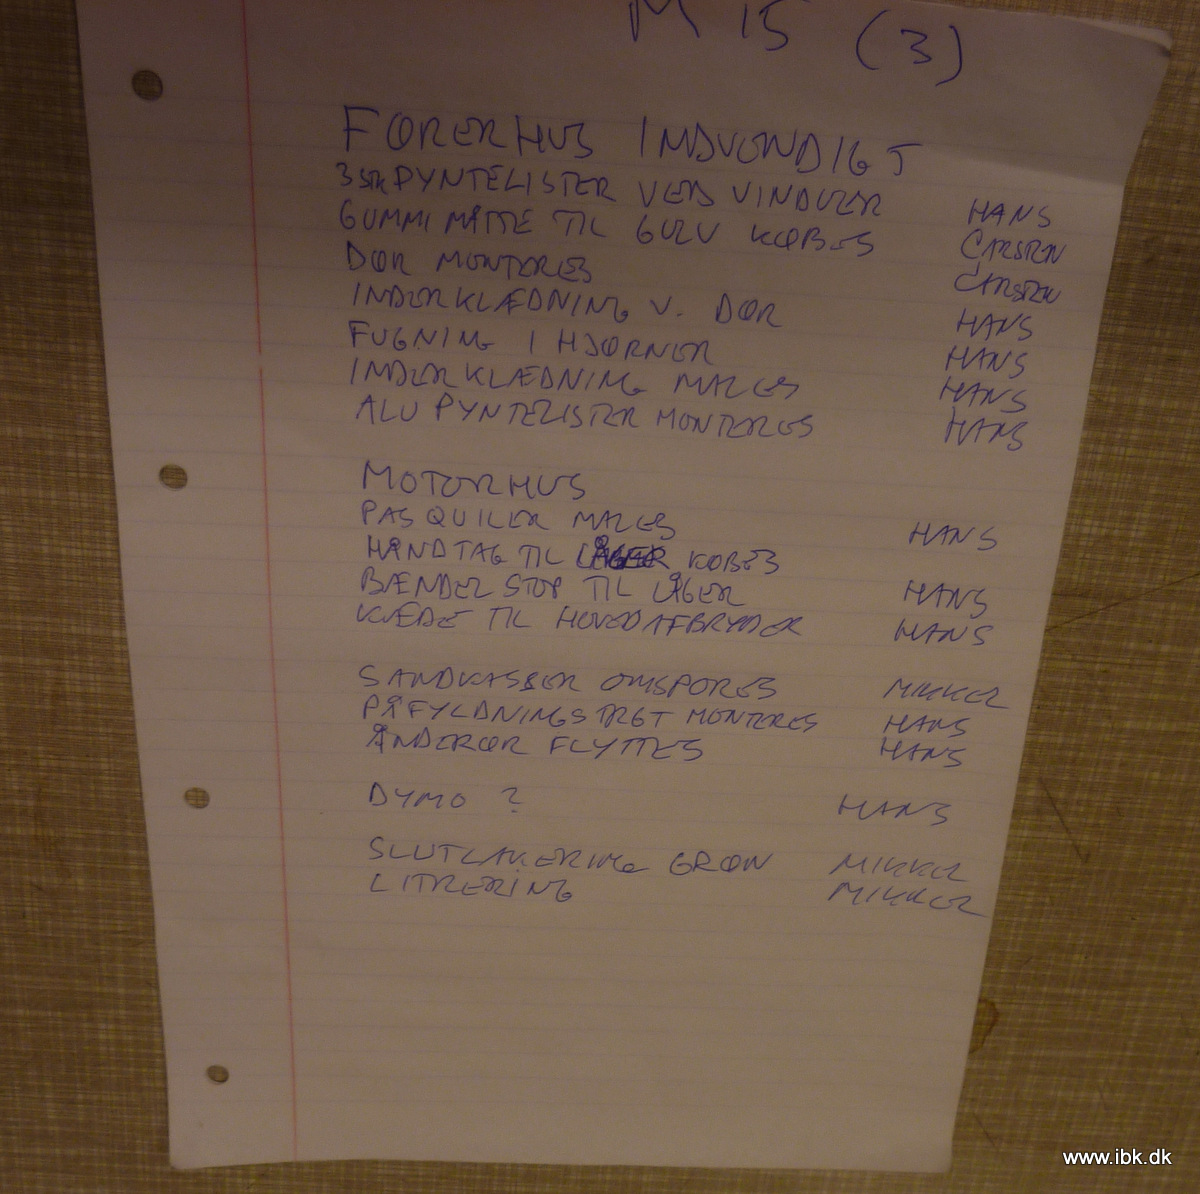 M 15 (3)
FØRERHUS INDVENDIGT
3 STK PYNTELISTER VED VINDUER HANS
GUMMIMÅTTE TIL GULV KØBES CARSTEN
DØR MONTERES CARSTEN
INDERKLÆDNING V. DØR HANS
FUGNING I HJØRNER HANS
INDERKLÆDNING MALES HANS
ALU PYNTELISTER MONTERES HANS
MOTORHUS
PASQUILER MALES HANS
HÅNDTAG TIL LÅGER KØBES
BÆNDEL STOP TIL LÅGER HANS
KÆDE TIL HOVEDAFBRYDER HANS
SANDKASSER OMSPORES MIKKEL
PÅFYLDNINGSTRGT MONTERES HANS
ÅNDERØR FLYTTES HANS
DYMO ? HANS
SLUTLAKERING GRØN MIKKEL
LITRERING MIKKEL
www.ibk.dk